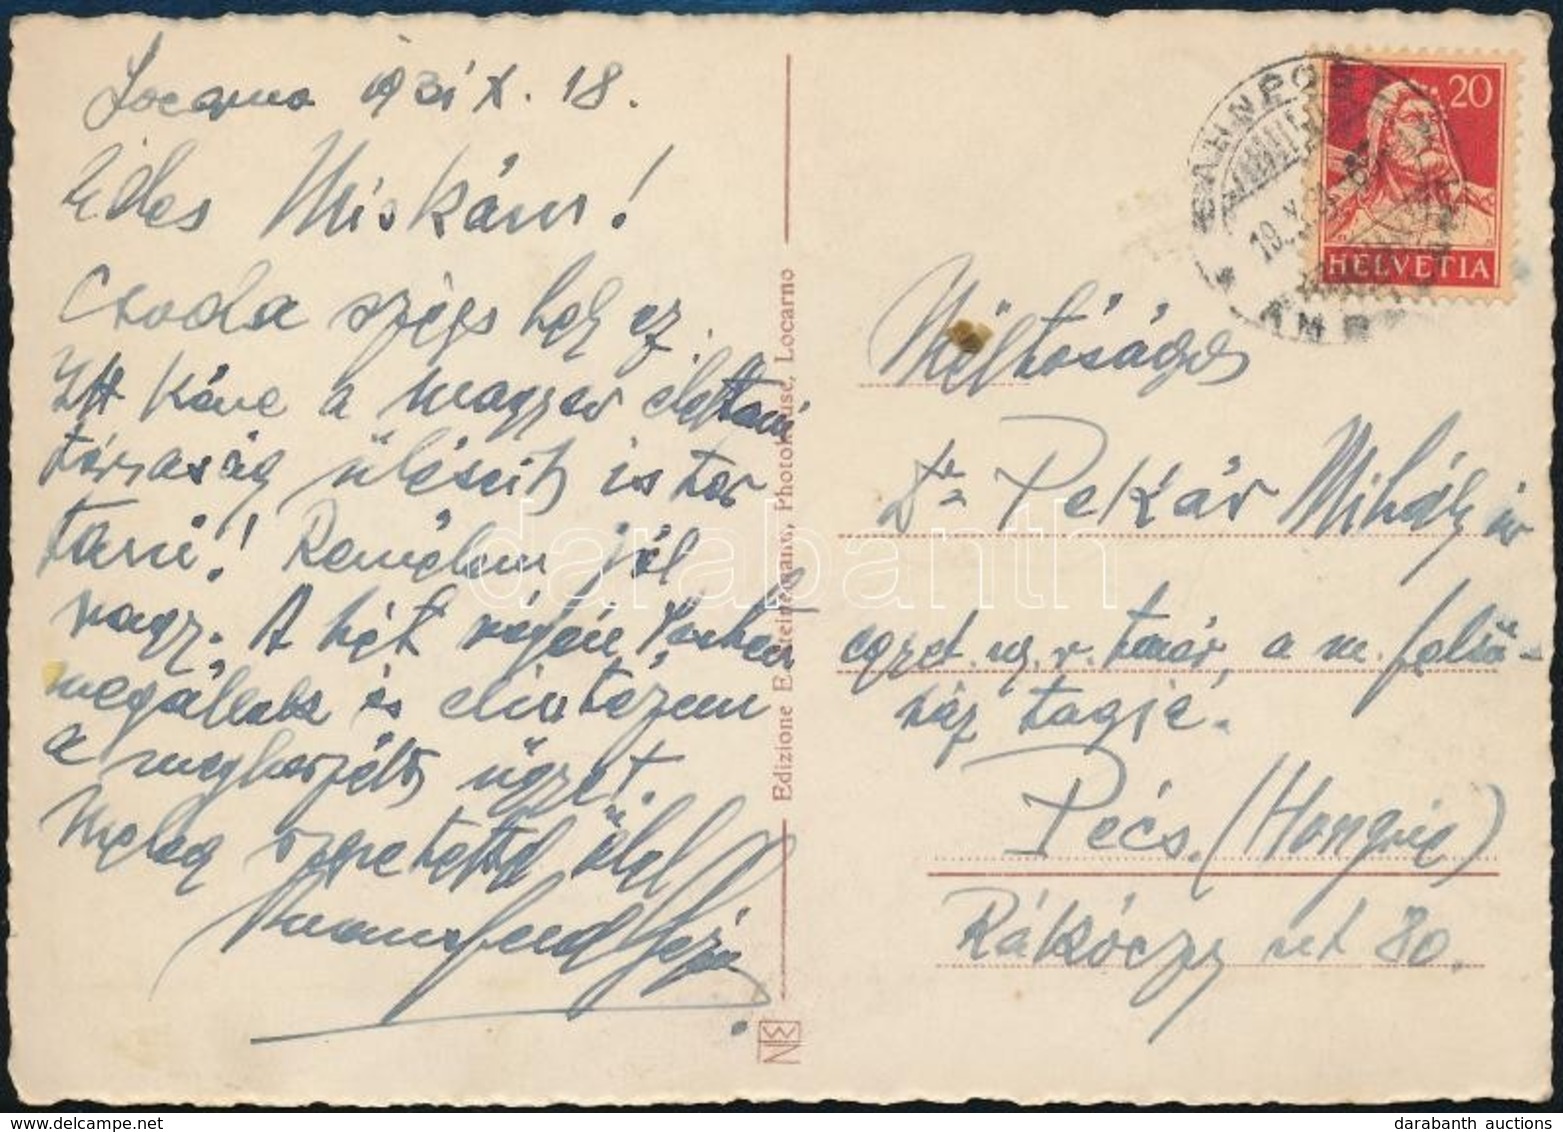 Locarno 1931 X. 18.
Édes Miskám!
Csoda szép hely ez.
Itt kéne a magyar élettani
társaság üléseit is tar
tani! Remélem jól
vagy. A hét végén
megállok és elintézem
a megbeszélt ügyet.
Meleg szeretettel ölel
Mansfeld Géza
Edizione E. Steinemann, Photohouse, Locarno
BAHNPOST
AMB
20
HELVETIA
Méltóságos
Dr. Pekár Mihály úr
egyet. ny. r. tanár, a m. felső-
ház tagja.
Pécs. (Hongrie)
Rákóczy út 80.
darabanth
darabanth auctions